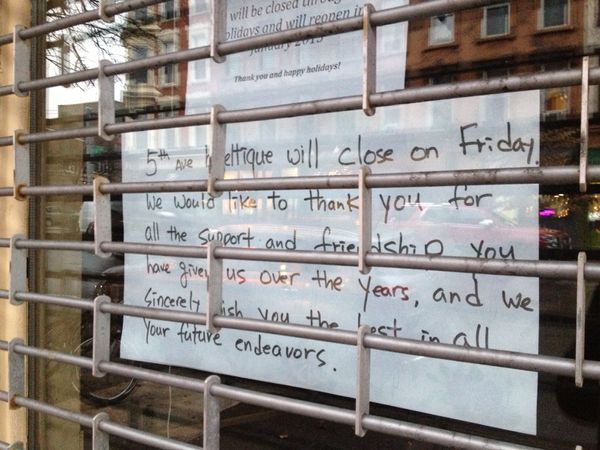 will be closed through
olidays and will reopen in
January 2013
Thank you and happy holidays!
5th Ave eltique will close on Friday.
We would like to thank you for
all the support and friendship you
have given us over the years, and we
Sincerely wish you the best in all
your future endeavors.